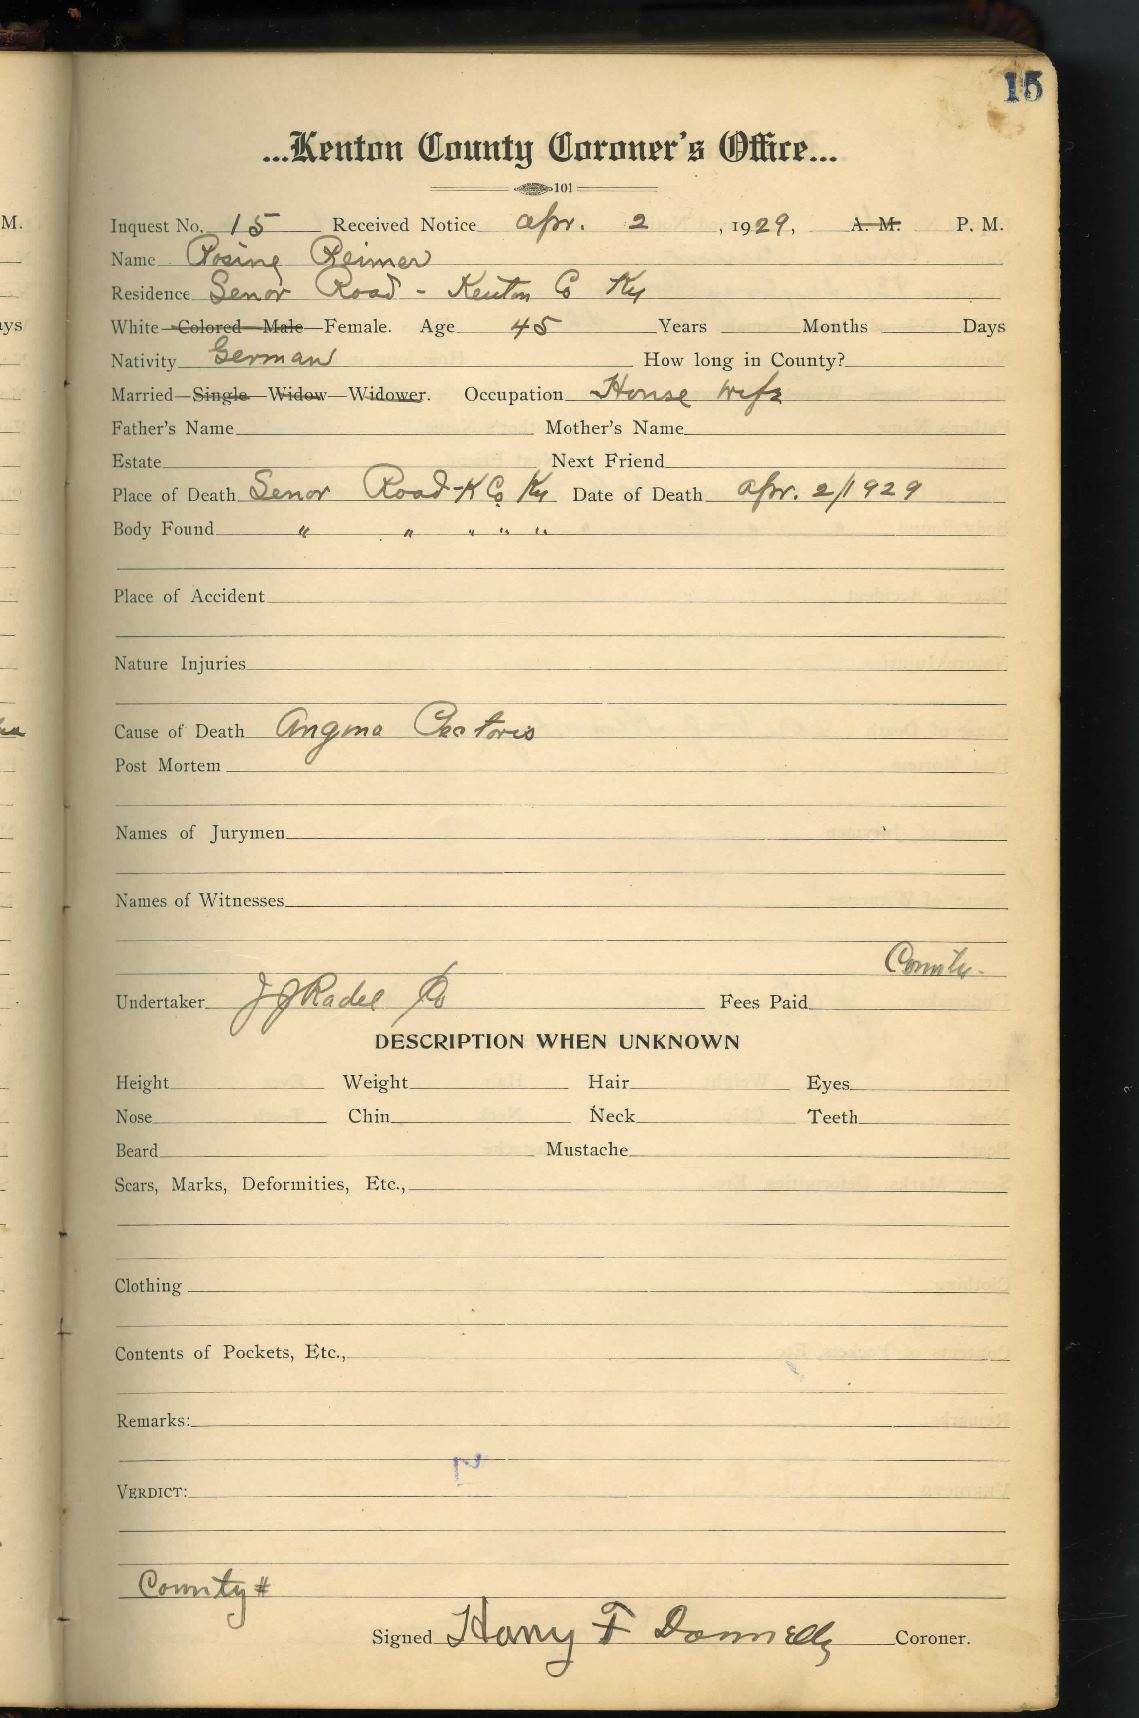 15
...Kenton County Coroner's Office...
101
Inquest No. 15 Received Notice Apr. 2, 1929, A. M. P. M.
Name Rosing Reimer
Residence Senor Road - Kenton Co Ky
White—Colored—Male—Female. Age 45 Years Months Days
Nativity German How long in County?
Married—Single—Widow—Widower. Occupation House wife
Father's Name Mother's Name
Estate Next Friend
Place of Death Senor Road-K Co Ky Date of Death Apr. 2/1929
Body Found " " " " "
Place of Accident
Nature Injuries
Cause of Death Angina Pectoris
Post Mortem
Names of Jurymen
Names of Witnesses
County.
Undertaker J J Radel Co Fees Paid
DESCRIPTION WHEN UNKNOWN
Height Weight Hair Eyes
Nose Chin Neck Teeth
Beard Mustache
Scars, Marks, Deformities, Etc.,
Clothing
Contents of Pockets, Etc.,
Remarks:
VERDICT:
County #
Signed Harry F Donnelly Coroner.
M.
ys